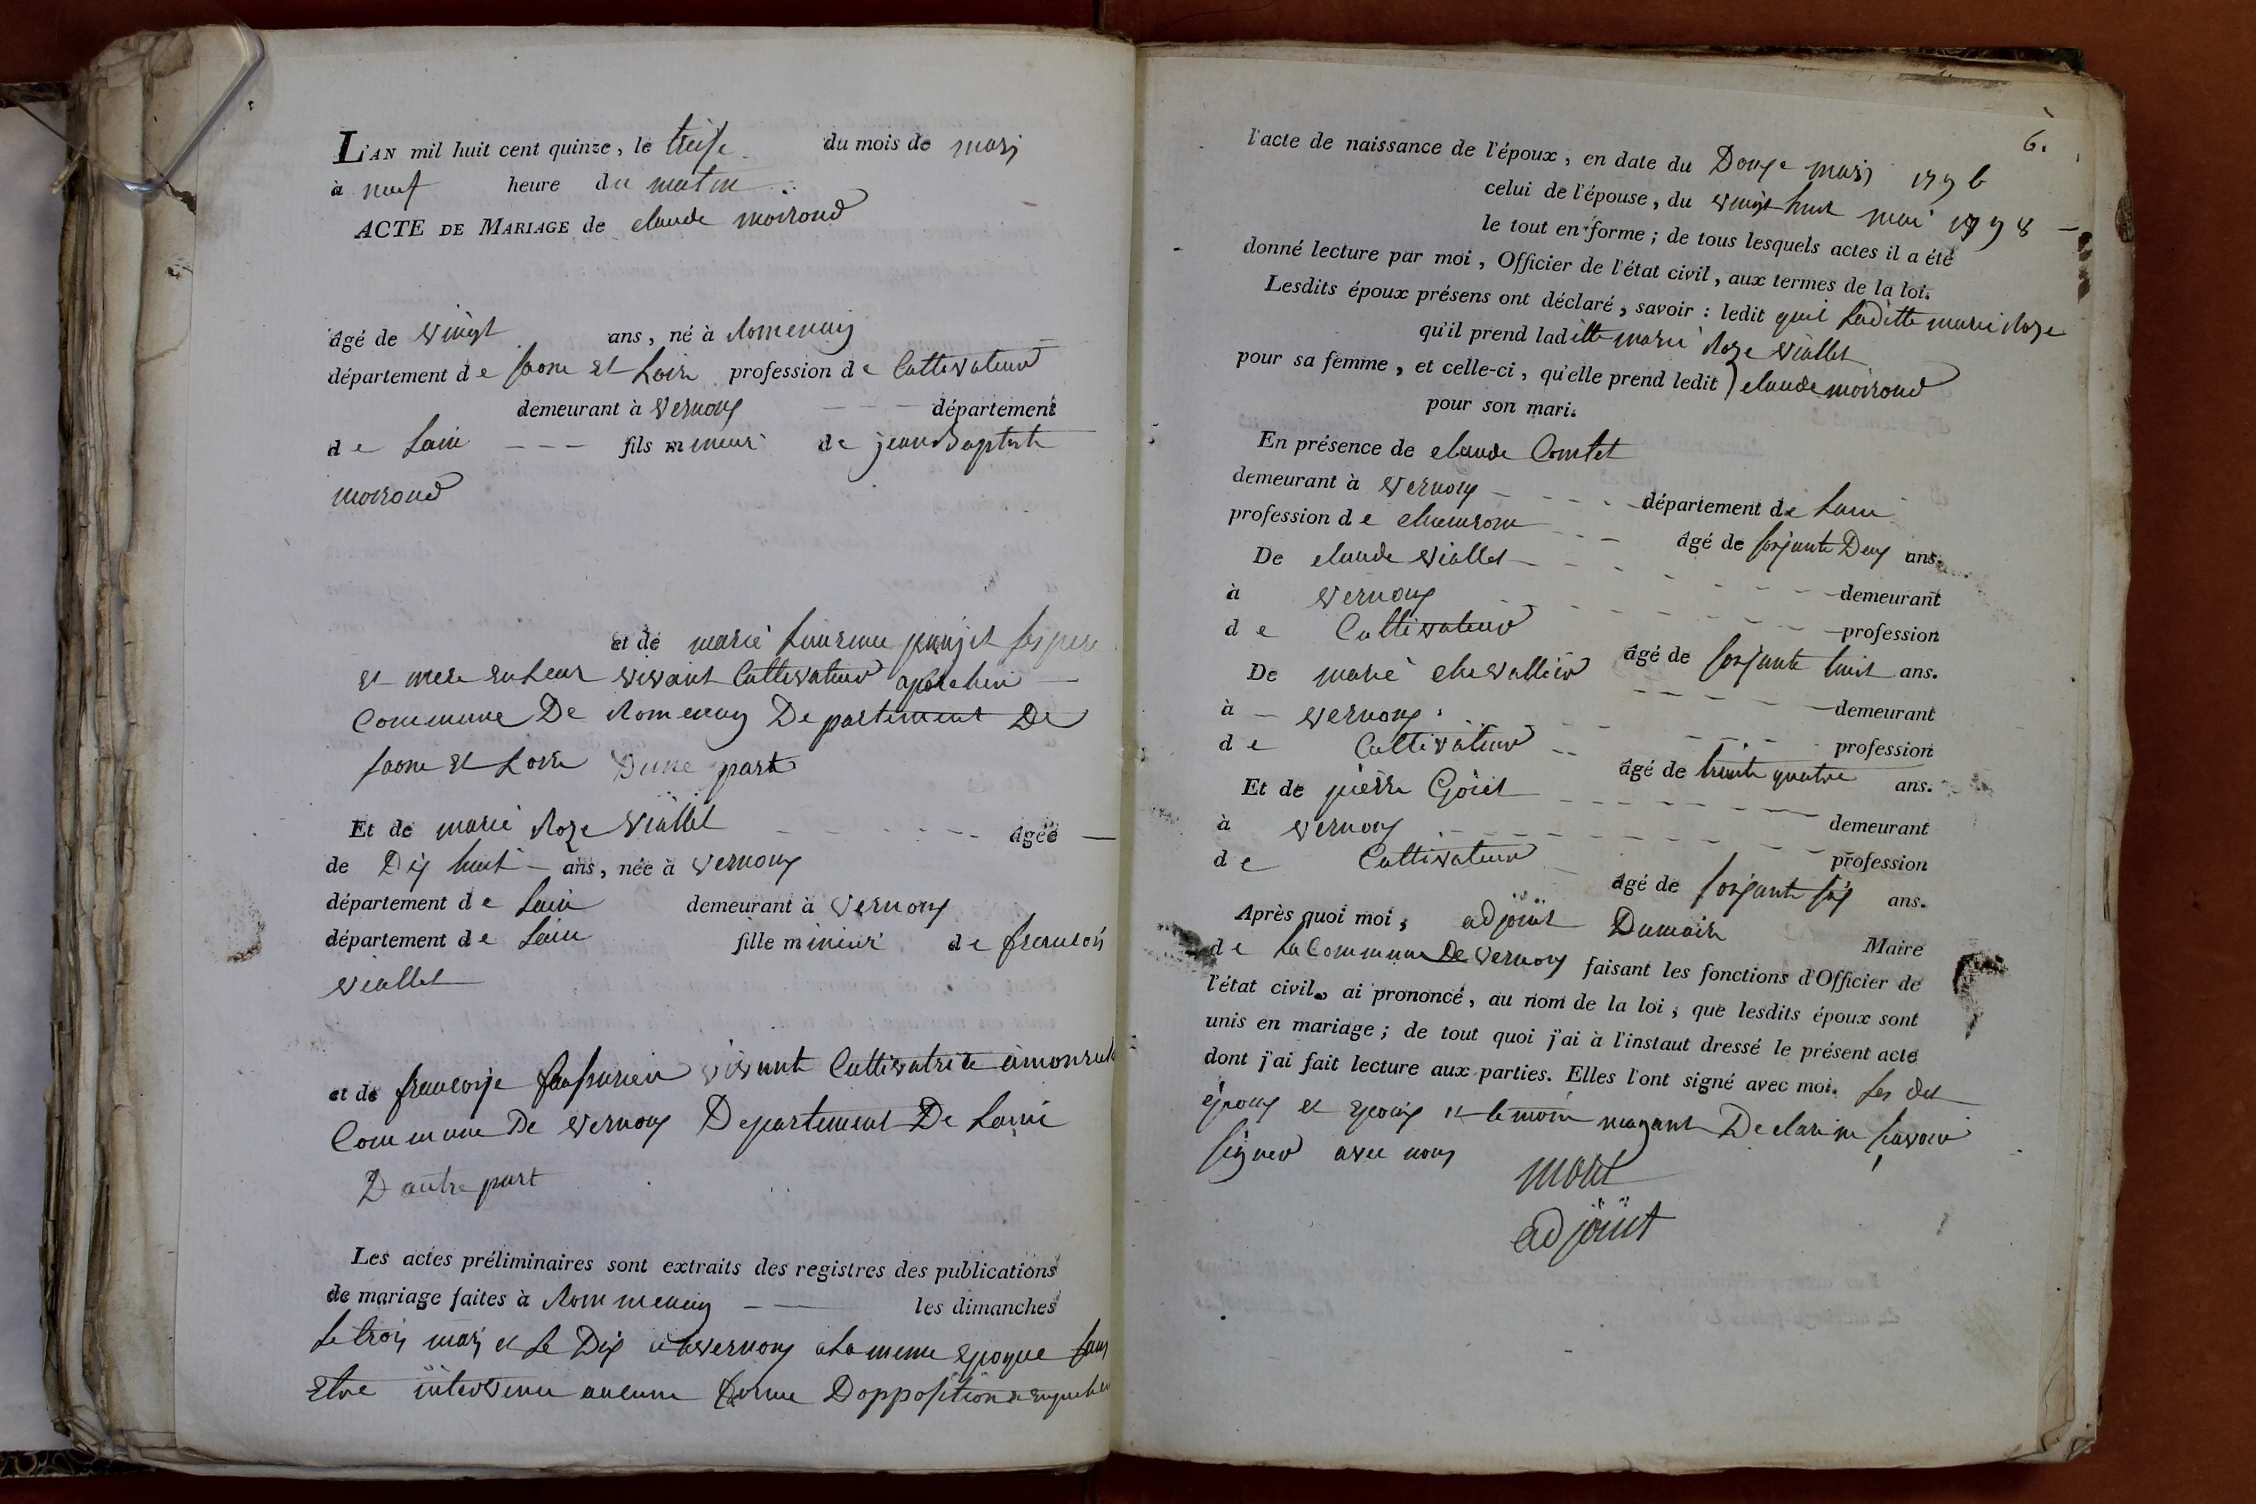 L'AN mil huit cent quinze, le treise du mois de mars
à neuf heure du matin
ACTE DE MARIAGE de claude moiroud
âgé de vingt ans, né à Romenay
département de saone et Loire profession de Cultivateur
demeurant à vernoux département
de Lain fils mineur de jean Baptiste
moiroud
et de marie Laurence ses pere
et mere en Leur vivant Cultivateur
Commune De Romenay Departement De
saone et Loire Dune part
Et de marie Roze viallet âgée
de Dix huit ans, née à vernoux
département de Lain demeurant à vernoux
département de Lain fille mineur de francois
viallet
et de francoise vivant Cultivatrice
Commune De vernoux Departement De Lain
D autre part
Les actes préliminaires sont extraits des registres des publications
de mariage faites à Rommenay les dimanches
Le trois mars et Le Dix vernoux a La meme epoque sans
Etre intervenu aucune Dopposition
6.
l'acte de naissance de l'époux, en date du Douze mars 1796
celui de l'épouse, du vingt huit mai 1798
le tout en forme; de tous lesquels actes il a été
donné lecture par moi, Officier de l'état civil, aux termes de la loi.
Lesdits époux présens ont déclaré, savoir : ledit quil Laditte marie Roze
qu'il prend laditte marie Roze viallet
pour sa femme, et celle-ci, qu'elle prend ledit claude moiroud
pour son mari.
En présence de claude Comtet
demeurant à vernoux département de Lain
profession de âgé de soixante Deux ans.
De claude viallet demeurant
à vernoux profession
de Cultivateur âgé de soixante huit ans.
De marie chevallier demeurant
à vernoux profession
de Cultivateur âgé de trente quatre ans.
Et de pierre Goiet demeurant
à vernoux profession
de Cultivateur âgé de soixante six ans.
Après quoi moi, adjoint Dumaire Maire
de La Commune De vernoux faisant les fonctions d'Officier de
l'état civil, ai prononcé, au nom de la loi, que lesdits époux sont
unis en mariage; de tout quoi j'ai à l'instant dressé le présent acte
dont j'ai fait lecture aux parties. Elles l'ont signé avec moi. Les dit
epoux et epouse et temoin Declare ne savoir
signer avec nous
adjoint